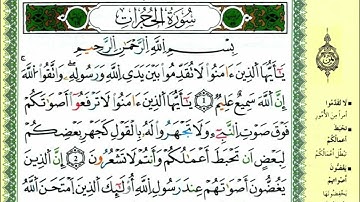 سُورَةُ الْحُجُرَاتِ
بِسْمِ اللَّهِ الرَّحْمَٰنِ الرَّحِيمِ
يَا أَيُّهَا الَّذِينَ ءَامَنُوا لَا تُقَدِّمُوا بَيْنَ يَدَيِ اللَّهِ وَرَسُولِهِ وَاتَّقُوا اللَّهَ
إِنَّ اللَّهَ سَمِيعٌ عَلِيمٌ ١ يَا أَيُّهَا الَّذِينَ ءَامَنُوا لَا تَرْفَعُوا أَصْوَاتَكُمْ
فَوْقَ صَوْتِ النَّبِيِّ وَلَا تَجْهَرُوا لَهُ بِالْقَوْلِ كَجَهْرِ بَعْضِكُمْ
لِبَعْضٍ أَن تَحْبَطَ أَعْمَالُكُمْ وَأَنتُمْ لَا تَشْعُرُونَ ٢ إِنَّ الَّذِينَ
يَغُضُّونَ أَصْوَاتَهُمْ عِندَ رَسُولِ اللَّهِ أُولَٰئِكَ الَّذِينَ امْتَحَنَ اللَّهُ
لَا تُقَدِّمُوا
أمراً من الأمور
تَحْبَطَ
أَعْمَالُكُمْ
تبطل أعمالكم
يَغُضُّونَ
أَصْوَاتَهُمْ
يخفضونها